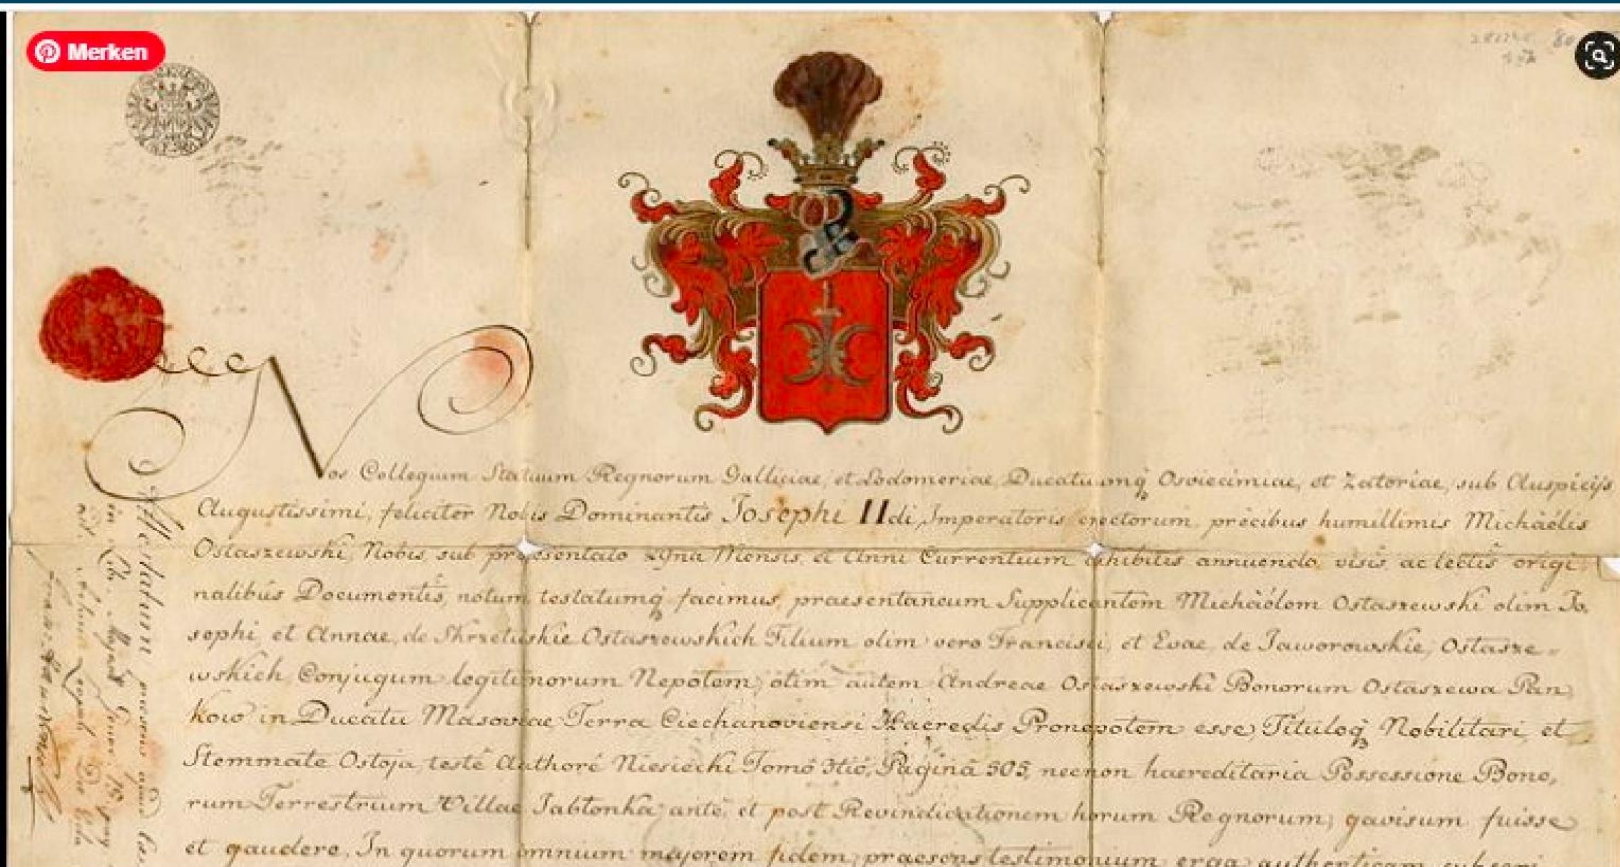 Merken
Nos Collegium Statuum Regnorum Galliciae, et Lodomeriae, Ducatuumq Osviecimiae, et Zatoriae, sub Auspicijs
Augustissimi, feliciter Nobis Dominantis Josephi IIdi Imperatoris erectorum, precibus humillimis Michaelis
Ostaszewski, Nobis, sub praesentato Mensis, et Anni Currentium exhibitis annuendo, visis, ac lectis origi
nalibus Documentis, notum testatumq facimus, praesentaneum Supplicantem Michaëlem Ostaszewski olim Jo,
sephi, et Annae, de Skrzetuskie Ostaszewskich Filium olim vero Francisci, et Evae, de Jaworowskie, Ostasze=
wskich Conjugum legitimorum Nepotem, olim autem Andreae Ostaszewski Bonorum Ostaszewa Pan,
kow in Ducatu Masoviae Terra Ciechanoviensi Haeredis Pronepotem esse, Tituloq Nobilitari, et
Stemmate Ostoja, teste Authore Niesiecki Tomo 3tio, Pagina 505, necnon haereditaria Possessione Bono,
rum Terrestrium Villae Jabłonka ante, et post Revindicationem horum Regnorum, gavisum fuisse
et gaudere. In quorum omnium majorem fidem, praesens testimonium erga authenticam
Attestatum praesens